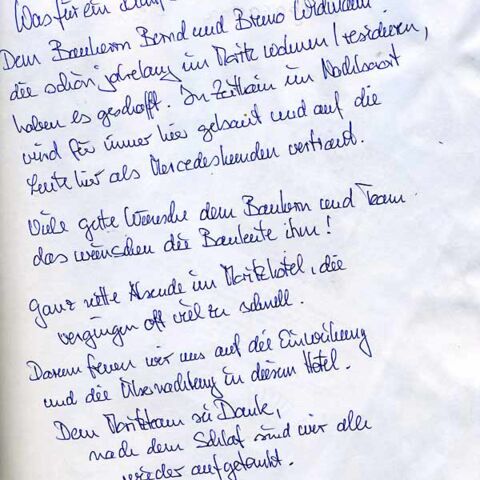 Was für ein
Dem Bauherrn Bernd und Bruno Widmann.
die schon jahrelang im Moritz wohnen / residieren,
haben es geschafft. In Zeithain im Nachbarort
wird für immer hier gebaut und auf die
Leute hier als Mercedeskunden vertraut.
Viele gute Wünsche dem Bauherrn und Team
das wünschen die Bauleute ihm!
Ganz nette Abende im Moritzhotel, die
vergingen oft viel zu schnell.
Darum freuen wir uns auf die Einweihung
und die Übernachtung in diesem Hotel.
Dem Moritzteam sei Dank,
nach dem Schlaf sind wir alle
wieder aufgetankt.